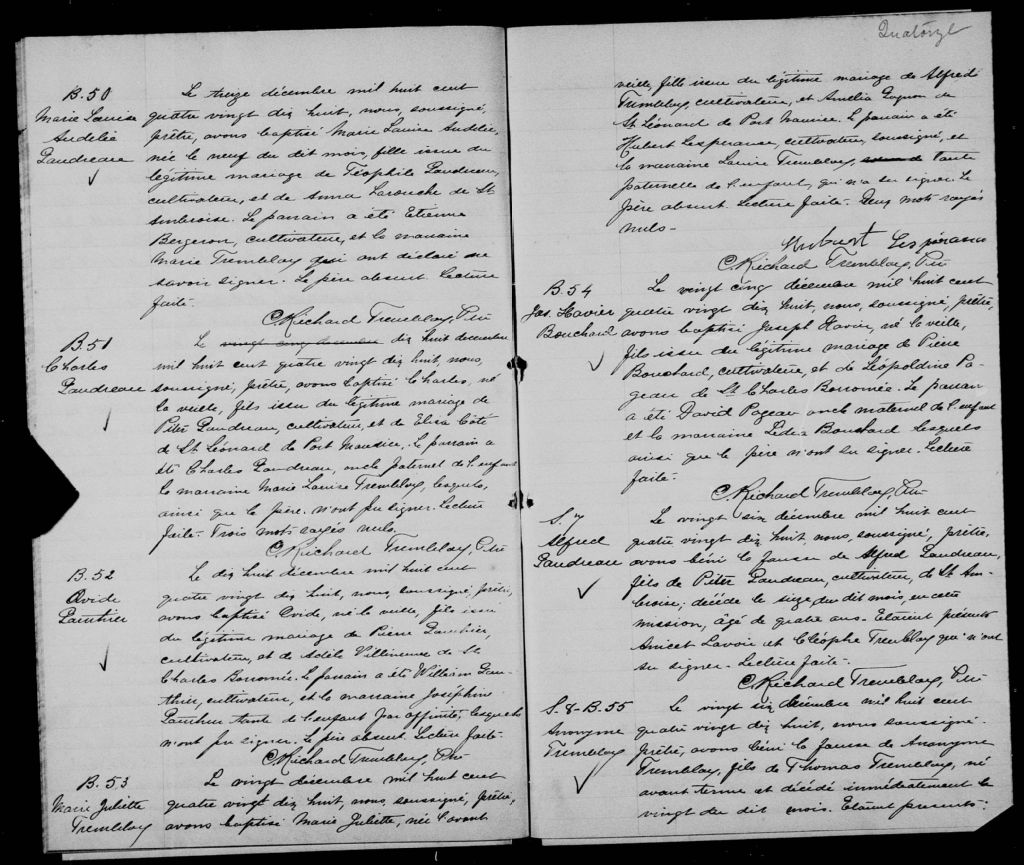 B.50
Marie Louise
Audélie
Gaudreau
Le treize décembre mil huit cent
quatre vingt dix huit, nous, soussigné,
prêtre, avons baptisé Marie Louise Audélie,
née le neuf du dit mois, fille issue du
légitime mariage de Téophile Gaudreau,
cultivateur, et de Anna Larouche de St
Ambroise. Le parrain a été Etienne
Bergeron, cultivateur, et la marraine
Marie Tremblay qui ont déclaré ne
savoir signer. Le père absent. Lecture
faite.
C. Richard Tremblay, Ptre
B.51
Charles
Gaudreau
Le vingt cinq décembre dix huit décembre
mil huit cent quatre vingt dix huit, nous,
soussigné, prêtre, avons baptisé Charles, né
la veille, fils issu du légitime mariage de
Piter Gaudreau, cultivateur, et de Elisa Côté
de St Léonard de Port Maurice. Le parrain a
été Charles Gaudreau, oncle paternel de l'enfant
la marraine Marie Louise Tremblay, lesquels,
ainsi que le père, n'ont pu signer. Lecture
faite. Trois mots rayés nuls.
C. Richard Tremblay, Ptre
B.52
Ovide
Gauthier
Le dix huit décembre mil huit cent
quatre vingt dix huit, nous, soussigné, prêtre,
avons baptisé Ovide, né la veille, fils issu
du légitime mariage de Pierre Gauthier,
cultivateur, et de Adèle Villeneuve de St
Charles Borromée. Le parrain a été William Gau-
thier, cultivateur, et la marraine Joséphine
Gauthier tante de l'enfant par affinité, lesquels
n'ont pu signer. Le père absent. Lecture faite.
C. Richard Tremblay, Ptre
B.53
Marie Juliette
Tremblay
Le vingt décembre mil huit cent
quatre vingt dix huit, nous, soussigné, prêtre,
avons baptisé Marie Juliette, née l'avant
Quatorze
veille, fille issue du légitime mariage de Alfred
Tremblay, cultivateur, et Amélia Gagnon de
St Léonard de Port Maurice. Le parrain a été
Hubert Lesperance, cultivateur, soussigné, et
la marraine Louise Tremblay, tante
paternelle de l'enfant, qui n'a su signer. Le
père absent. Lecture faite. Deux mots rayés
nuls.
Hubert Lespérance
C. Richard Tremblay, Ptre
B.54
Jos. Xavier
Bouchard
Le vingt cinq décembre mil huit cent
quatre vingt dix huit, nous, soussigné, prêtre,
avons baptisé Joseph Xavier, né la veille,
fils issu du légitime mariage de Pierre
Bouchard, cultivateur, et de Léopoldine Pa-
geau de St Charles Borromée. Le parrain
a été David Pageau oncle maternel de l'enfant
et la marraine Lédia Bouchard lesquels
ainsi que le père n'ont su signer. Lecture
faite.
C. Richard Tremblay, Ptre
S.7
Alfred
Gaudreau
Le vingt six décembre mil huit cent
quatre vingt dix huit, nous, soussigné, prêtre,
avons béni la fausse de Alfred Gaudreau,
fils de Piter Gaudreau, cultivateur, de St Am-
broise, décédé le seize du dit mois, en cette
mission, âgé de quatre ans. Etaient présents
Anicet Lavoie et Cléophe Tremblay qui n'ont
su signer. Lecture faite.
C. Richard Tremblay, Ptre
S.8-B.55
Anonyme
Tremblay
Le vingt six décembre mil huit cent
quatre vingt dix huit, nous soussigné
prêtre, avons béni la fausse de Anonyme
Tremblay, fils de Thomas Tremblay, né
avant terme et décédé immédiatement le
vingt du dit mois. Etaient présents: